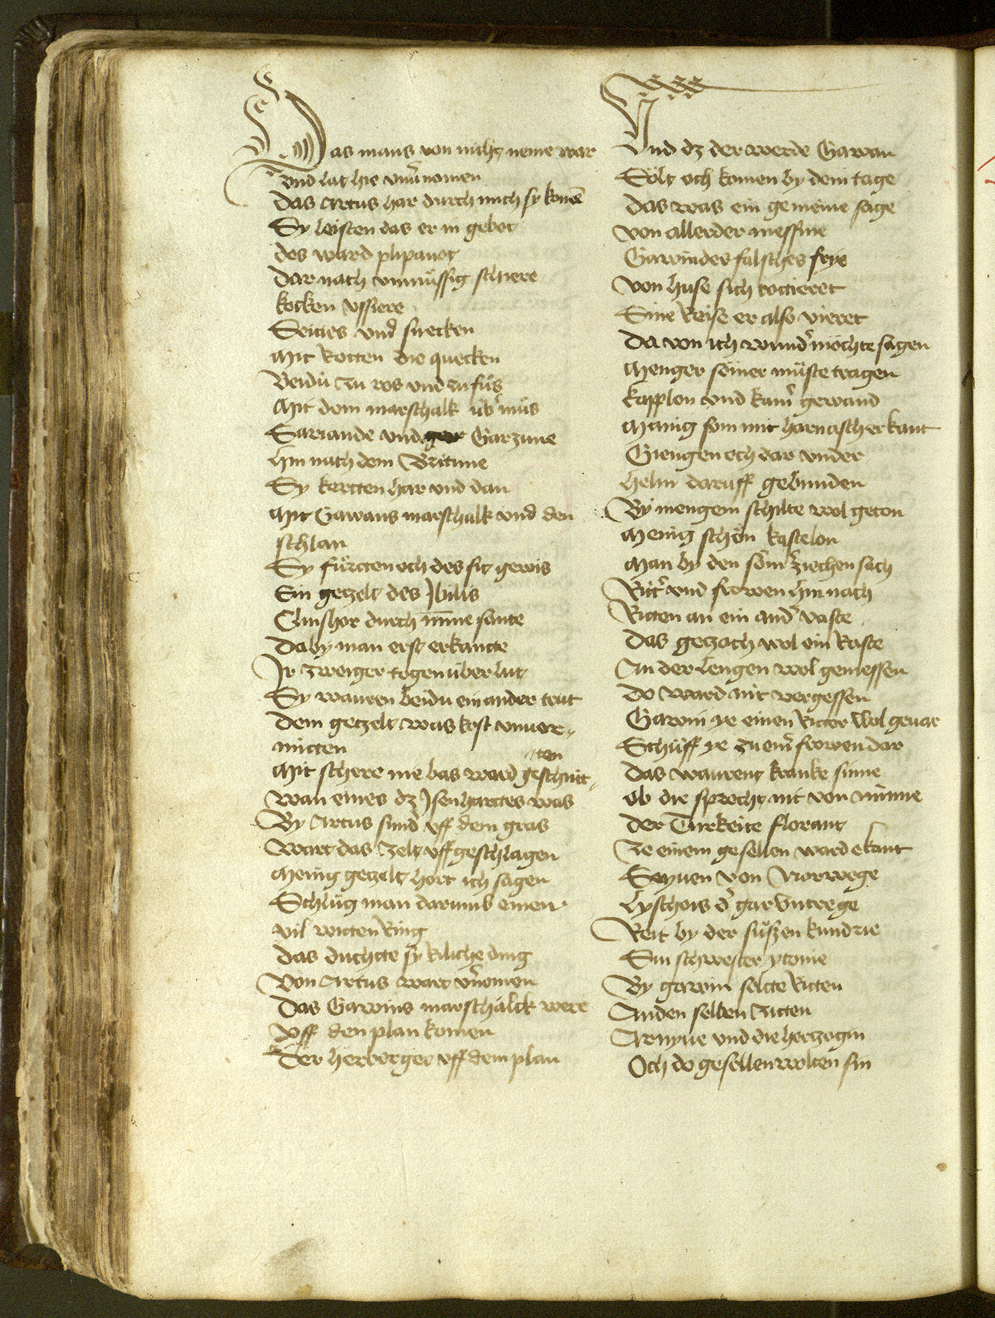 Das mans von nùhtz neme war
vnd lat hie vnuernomen
Das Artus har durch mich sy komē
Sy leisten das er in gebot
des ward plipanot
Dar nach vnmùssig schiere
kocken vssiere
Seities vnd snecken
Mit Rotten die quecken
Beidù zu ros vnd zu fùs
Mit dem marschalk ùb' mùs
Sariande vnd Garzune
hin nach dem Britune
Sy kerten har vnd dan
Mit Gawans marschalk vnd den
schlan
Sy fùrtten och des sit gewis
Ein gezelt des Jbilis
Clinshor durch minne sante
Da by man erst erkante
Jr zweiger togen ùber lut
Sy wauren beidu ein ander trut
Dem gezelt was kost vnuer-
mitten
Mit schere nie bas ward geschnit-
ten
wan eines dz Jsenhartes was
By Artus sund' vff dem gras
Wart das Zelt vff geschlagen
Menig gezelt hort ich sagen
Schlùg man darumb einen
vil witten Ring
das duchte sy riliche ding
Von Artus wart v'nomen
Das Gawins marschalck were
Vff den plan komen
Der herberget vff dem plan
Vnd dz der werde Gawan
Sòlt och komen by dem tage
das was ein gemeine sage
von aller der messnie
Gawin des falsches frye
Von huse sich rottieret
Sine Reise er also vieret
Da von ich wund' mòchte sagen
Menger sòmer mùste tragen
kapplon vnd kam' gewand
Manig sòm mit harnasch erkant
Giengen och dar vnder
helm daruff gebunden
By mengem schilte wol geton
Menig schòn kastelon
Man by den sòm' ziechen sach
Ritt' vnd frowen hin nach
Ritten an ein and' vaste
das gezoch wol ein Raste
An der lengen wol gemessen
do ward nit vergessen
Gawin ye einen Ritter wol geuar
Schùff ye zu ein' frowen dar
das waurent kranke sinne
ob die sprochent nit von minne
der Turkeite florant
Ze einem gesellen ward ekant
Seyuen von Norwege
Lyschois d' gar vntrege
Reit by der sùssen kundrie
Sin schwester ytonie
By gawin solte Ritten
An den selben Zitten
Arnyue vnd die herzogin
Och do gesellen wolten sin